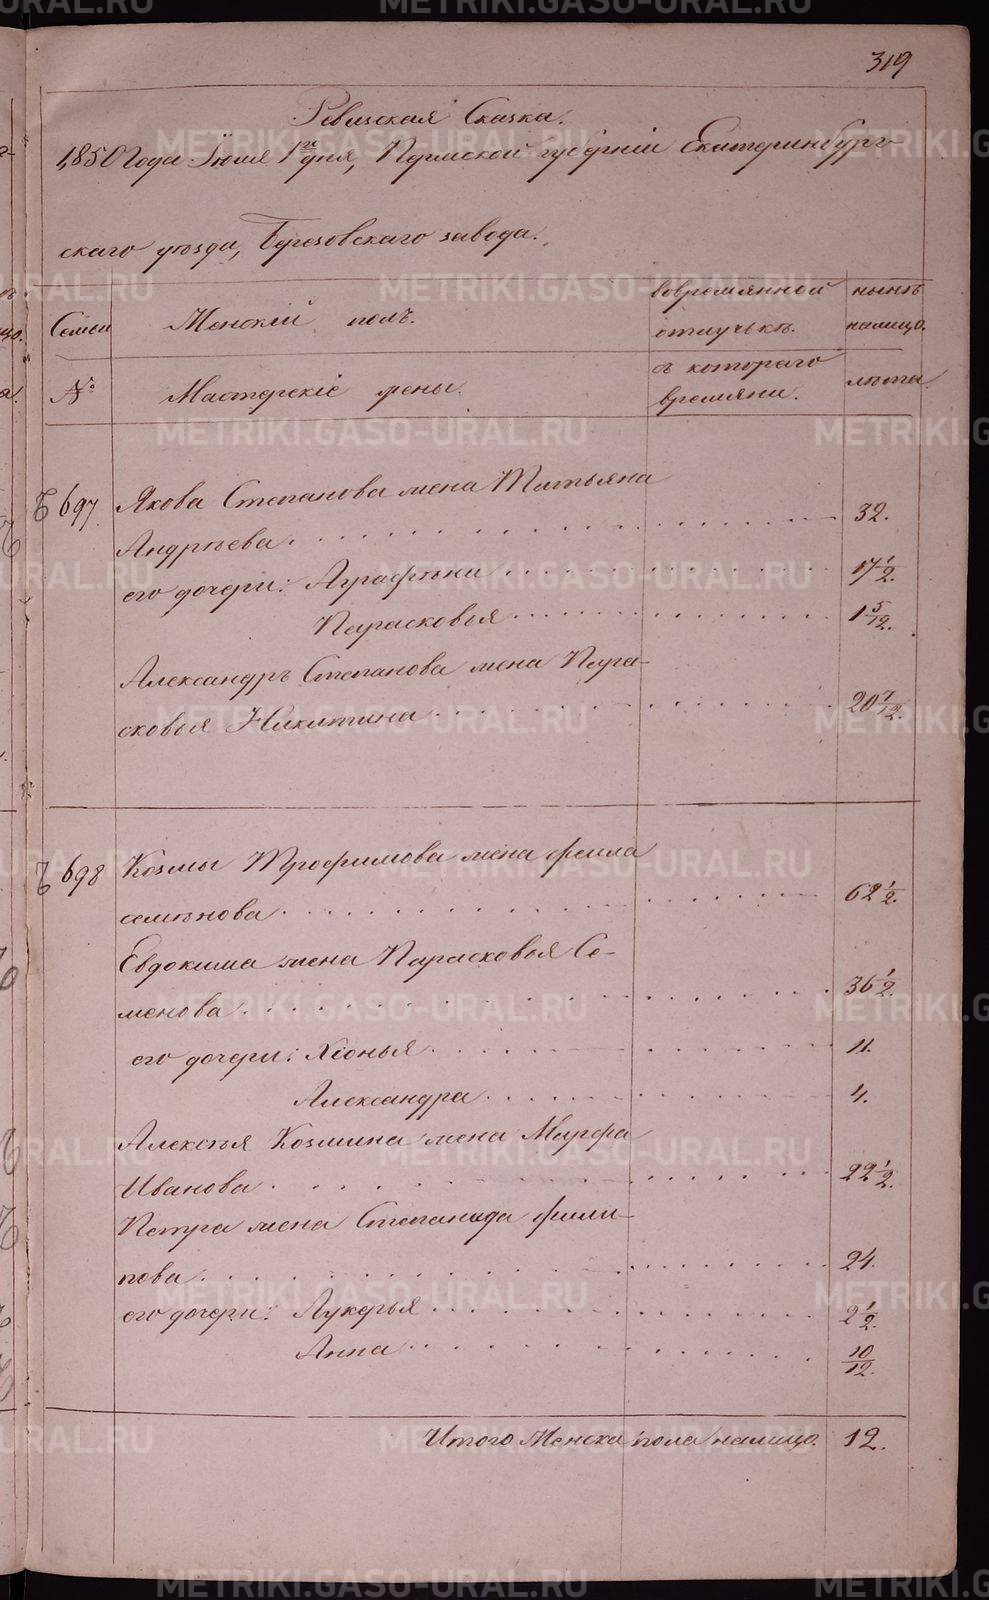 319
Ревизская Сказка.
1850 года Июля 1го дня, Пермской губерніи Екатеринбург-
скаго уѣзда, Березовскаго завода.
Семьи Женскій полъ. вовремянной нынѣ
отлучькѣ. налицо.
№ Мастерскіе жены. съ котораго лѣта.
времяни.
697 Якова Степанова жена Татьяна
Андрѣева 32.
его дочери: Аграфѣна 17 1/2.
Парасковья 1 5/12.
Александръ Степанова жена Пара-
сковья Никитина 20 7/12.
698 Козмы Трофимова жена фекла
семѣнова 62 1/2.
Евдокима жена Парасковья Се-
менова 36 1/2.
его дочери: Хіонья 11.
Александра 4.
Алексѣя Козмина жена Марфа
Иванова 22 1/2.
Петра жена Степанида фили-
пова 24.
его дочери: Лукерья 2 1/2.
Анна 10/12.
Итого Женска пола налицо. 12.
METRIKI.GASO-URAL.RU